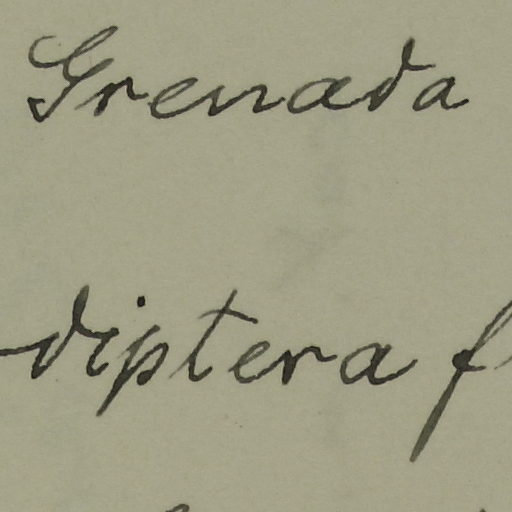 Grenada
diptera f